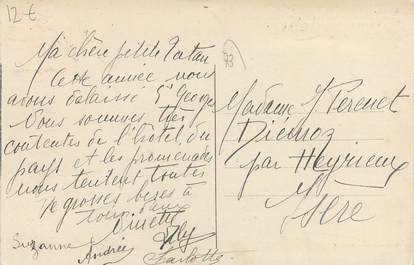 12 €
Ma chère petite Tatan
Cette année nous
avons délaissé St Georges
Nous sommes très
contentes de l'hôtel, du
pays et les promenades
nous tentent toutes
De grosses bises à
tous deux
Ginette
Suzanne
Andrée
Lily
Charlotte
93
Madame Perenet
Diemoz
par Heyrieux
Isère